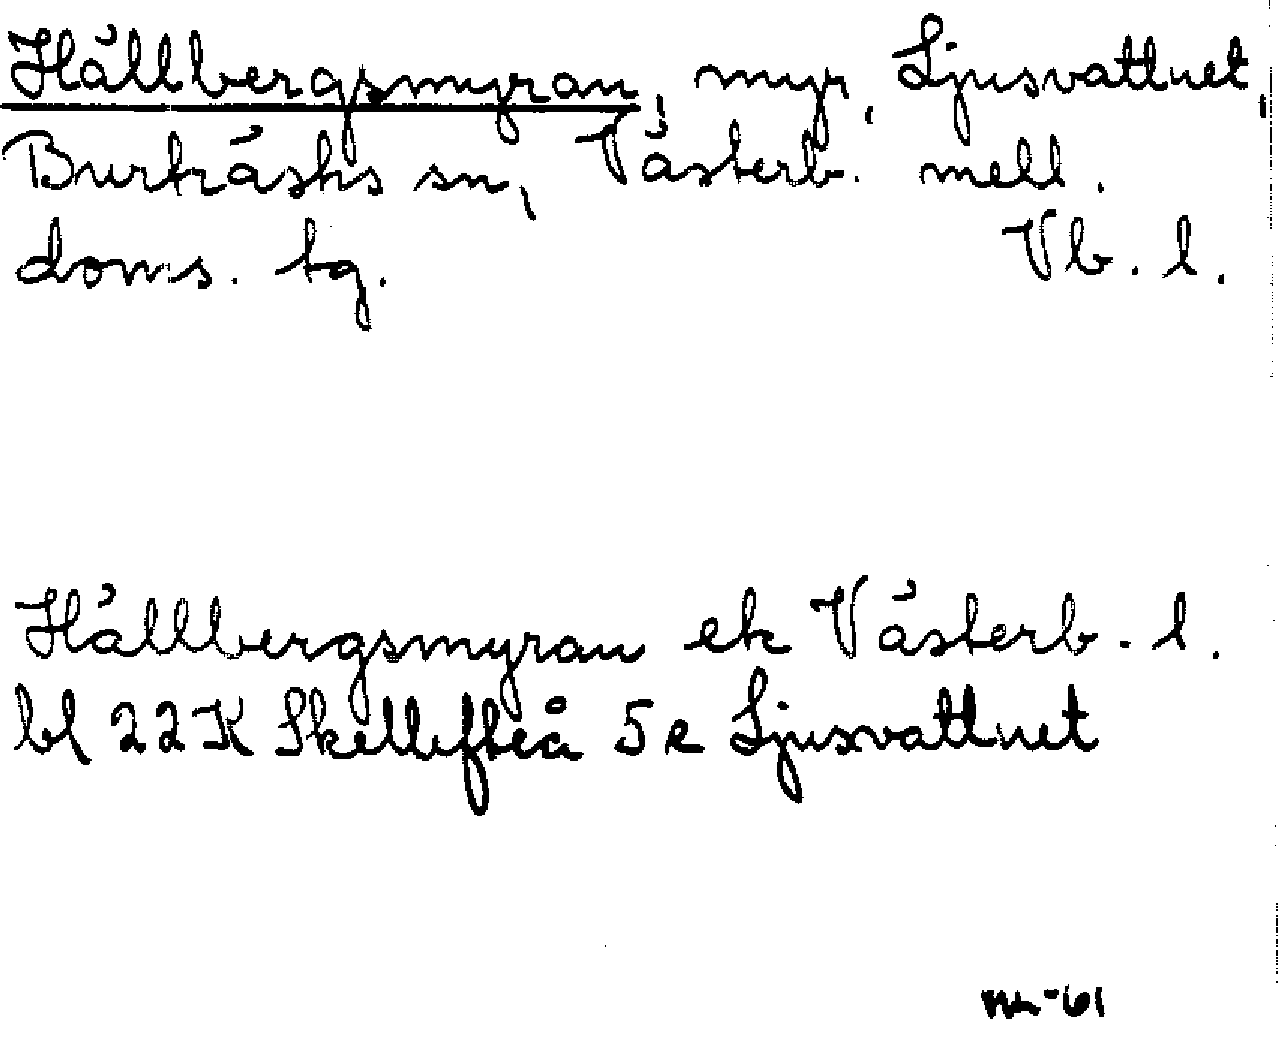 Hällbergsmyran, myr, Ljusvattnet,
Burträsks sn, Västerb. mell.
doms. tg. Vb. l.
Hällbergsmyran ek Västerb. l.
bl 22K Skellefteå 5e Ljusvattnet